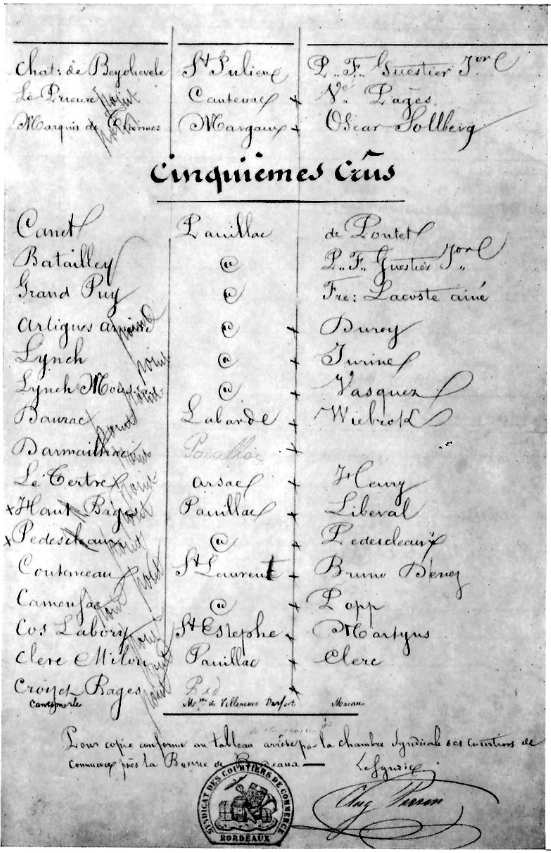 Chat: de Beychevele St Julien P. F. Guestier Jor
Le Prieuré Cantenac Ve. Pagès
Marquis de Thermes Margaux Oscar Sollberg
Cinquièmes Crûs
Canet Pauillac de Pontet
Batailley @ P. F. Guestier Jor
Grand Puy @ Fre: Lacoste ainé
Artigues Duroy
Lynch @ Jurine
Lynch Moussas @ Vasquez
Dauzac Labarde Wiebrok
Darmailhac Pauillac
Le Tertre Arsac Henry
Haut Bages Pauillac Liberal
Pedescleaux @ Pedescleaux
Coutenceau St Laurent Bruno Devez
Camensac @ Popp
Cos Labory St Estèphe Martyns
Clerc Milon Pauillac Clerc
Croizet Bages
Cantemerle Mme de Villeneuve Durfort Macau
Pour copie conforme au tableau arrêté par la chambre Syndicale des Courtiers de
Commerce près la Bourse de Bordeaux
Le Syndic
SYNDICAT DES COURTIERS DE COMMERCE
BORDEAUX